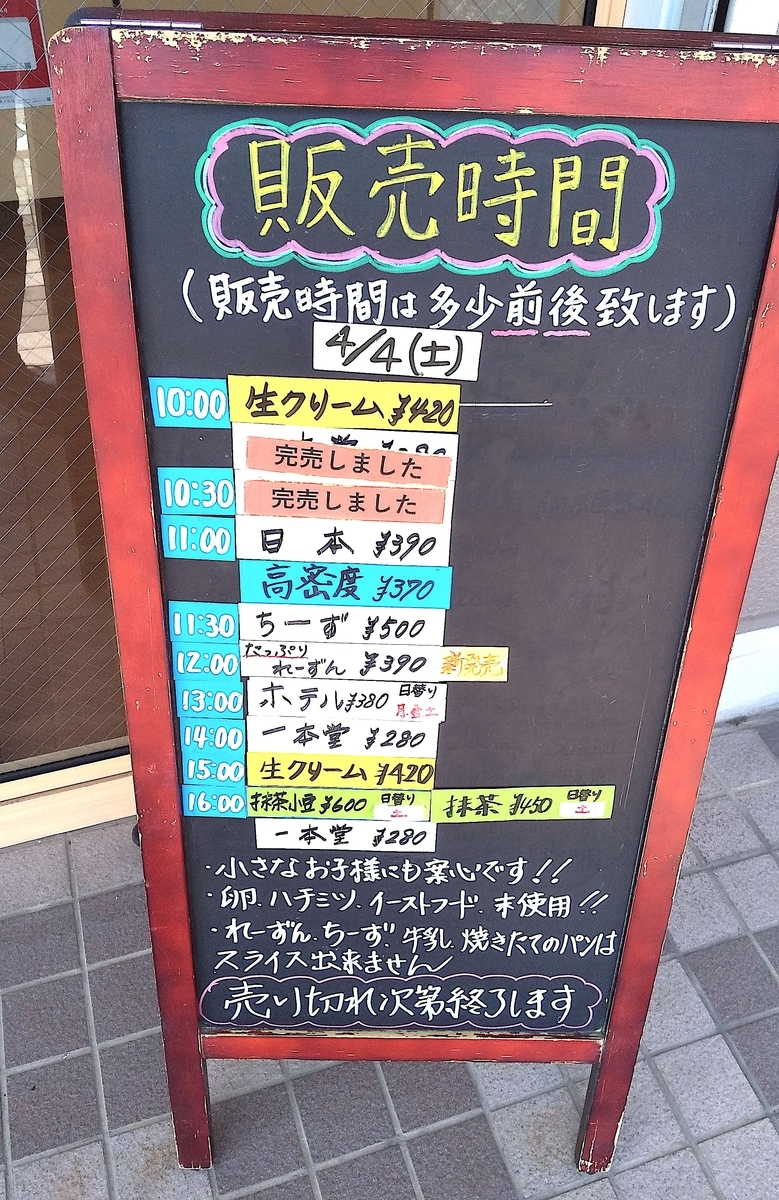 販売時間
(販売時間は多少前後致します)
4/4(土)
10:00 生クリーム ¥420
完売しました
10:30 完売しました
11:00 日本 ¥390
高密度 ¥370
11:30 ちーず ¥500
12:00 たっぷり れーずん ¥390 新発売
13:00 ホテル ¥380 日替り 月金土
14:00 一本堂 ¥280
15:00 生クリーム ¥420
16:00 抹茶小豆 ¥600 日替り 土 抹茶 ¥450 日替り 土
一本堂 ¥280
・小さなお子様にも安心です!!
・卵、ハチミツ、イーストフード、未使用!!
・れーずん、ちーず、牛乳、焼きたてのパンは
スライス出来ません
売り切れ次第終了します